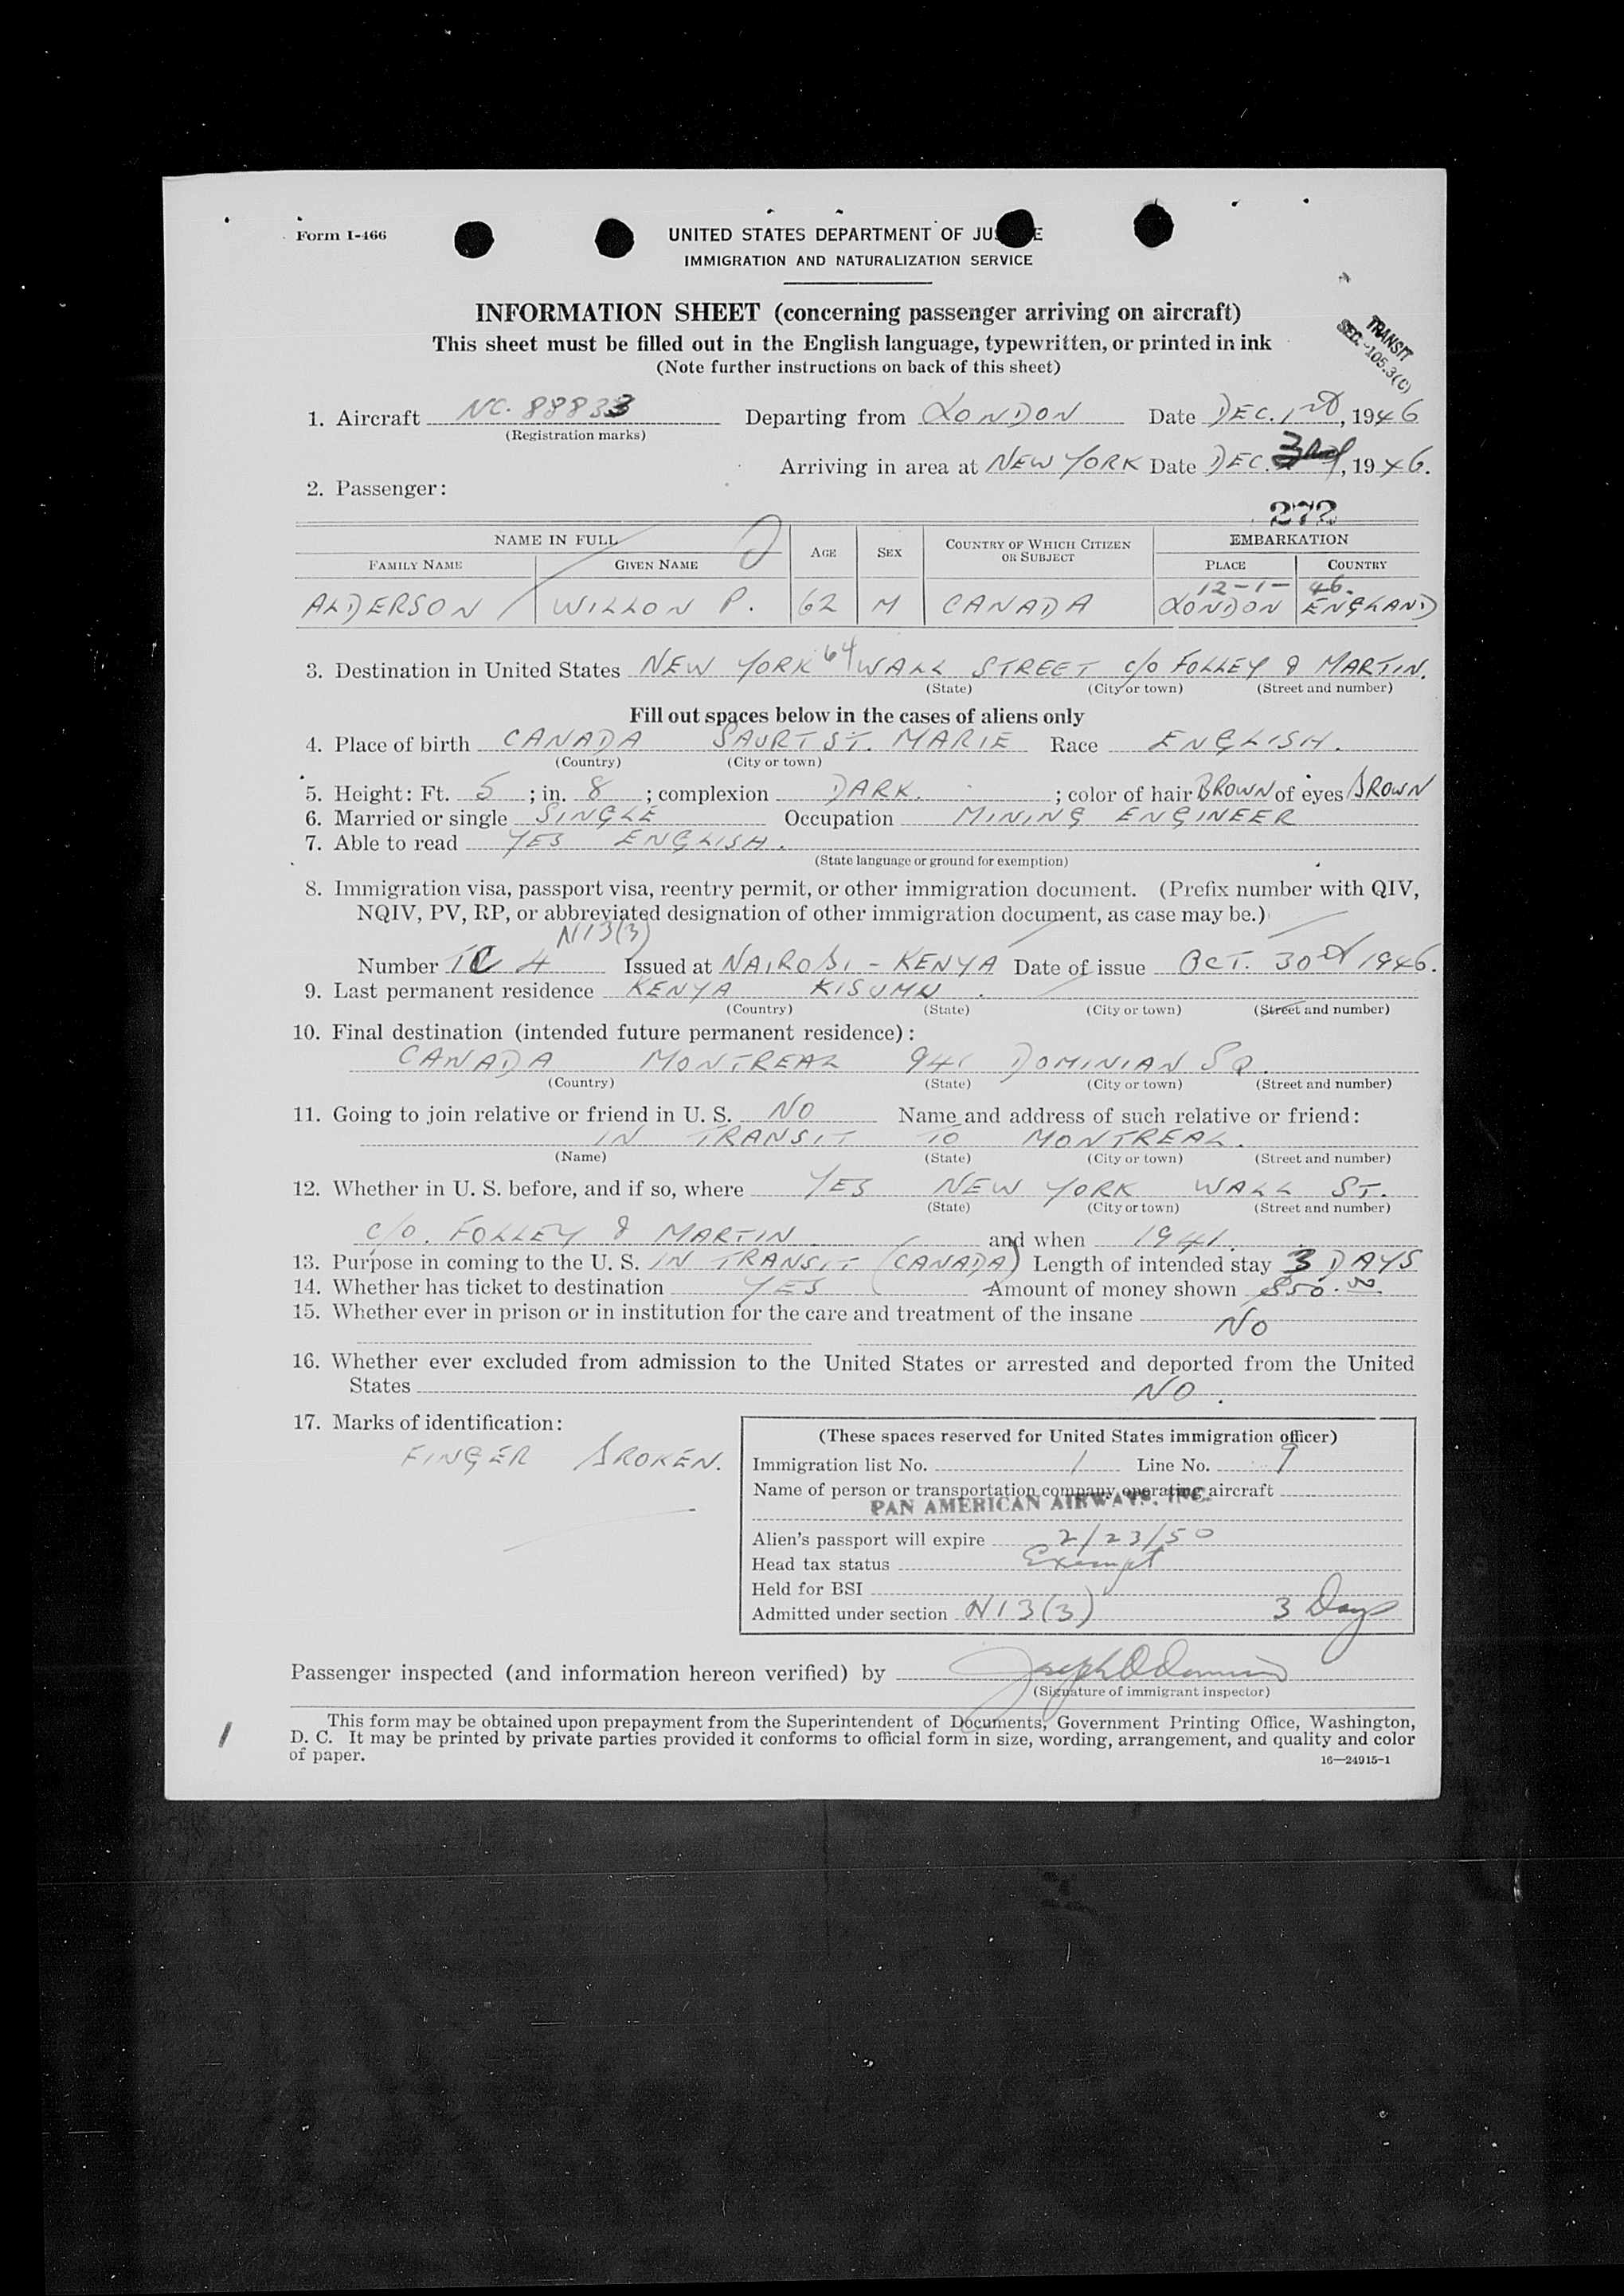 Form I-466
UNITED STATES DEPARTMENT OF JUS E
IMMIGRATION AND NATURALIZATION SERVICE
INFORMATION SHEET (concerning passenger arriving on aircraft)
This sheet must be filled out in the English language, typewritten, or printed in ink
(Note further instructions on back of this sheet)
TRANSIT
SEC. 105.3(C)
1. Aircraft NC. 88833 Departing from LONDON Date DEC. 1st, 1946
(Registration marks)
Arriving in area at NEW YORK Date DEC. 3rd, 1946.
2. Passenger:
272
NAME IN FULL AGE SEX COUNTRY OF WHICH CITIZEN OR SUBJECT EMBARKATION
FAMILY NAME GIVEN NAME PLACE COUNTRY
12-1-46.
ALDERSON WILLON P. 62 M CANADA LONDON ENGLAND
3. Destination in United States NEW YORK 64 WALL STREET c/o FOLLEY & MARTIN.
(State) (City or town) (Street and number)
Fill out spaces below in the cases of aliens only
4. Place of birth CANADA SAURT ST. MARIE Race ENGLISH.
(Country) (City or town)
5. Height: Ft. 5; in. 8; complexion DARK.; color of hair BROWN of eyes BROWN
6. Married or single SINGLE Occupation MINING ENGINEER
7. Able to read YES ENGLISH.
(State language or ground for exemption)
8. Immigration visa, passport visa, reentry permit, or other immigration document. (Prefix number with QIV,
NQIV, PV, RP, or abbreviated designation of other immigration document, as case may be.)
N13(3)
Number TC 4 Issued at NAIROBI - KENYA Date of issue OCT. 30th 1946.
9. Last permanent residence KENYA KISUMU.
(Country) (State) (City or town) (Street and number)
10. Final destination (intended future permanent residence):
CANADA MONTREAL 941 DOMINIAN SQ.
(Country) (State) (City or town) (Street and number)
11. Going to join relative or friend in U. S. NO Name and address of such relative or friend:
IN TRANSIT TO MONTREAL.
(Name) (State) (City or town) (Street and number)
12. Whether in U. S. before, and if so, where YES NEW YORK WALL ST.
(State) (City or town) (Street and number)
c/o. FOLLEY & MARTIN. and when 1941.
13. Purpose in coming to the U. S. IN TRANSIT (CANADA) Length of intended stay 3 DAYS
14. Whether has ticket to destination YES Amount of money shown $50.00
15. Whether ever in prison or in institution for the care and treatment of the insane
NO
16. Whether ever excluded from admission to the United States or arrested and deported from the United
States NO.
17. Marks of identification:
FINGER BROKEN.
(These spaces reserved for United States immigration officer)
Immigration list No. 1 Line No. 9
Name of person or transportation company operating aircraft
PAN AMERICAN AIRWAYS, INC.
Alien's passport will expire 2/23/50
Head tax status Exempt
Held for BSI
Admitted under section N13(3) 3 Days
Passenger inspected (and information hereon verified) by Joseph
(Signature of immigrant inspector)
This form may be obtained upon prepayment from the Superintendent of Documents, Government Printing Office, Washington,
D. C. It may be printed by private parties provided it conforms to official form in size, wording, arrangement, and quality and color
of paper.
16—24915-1
1